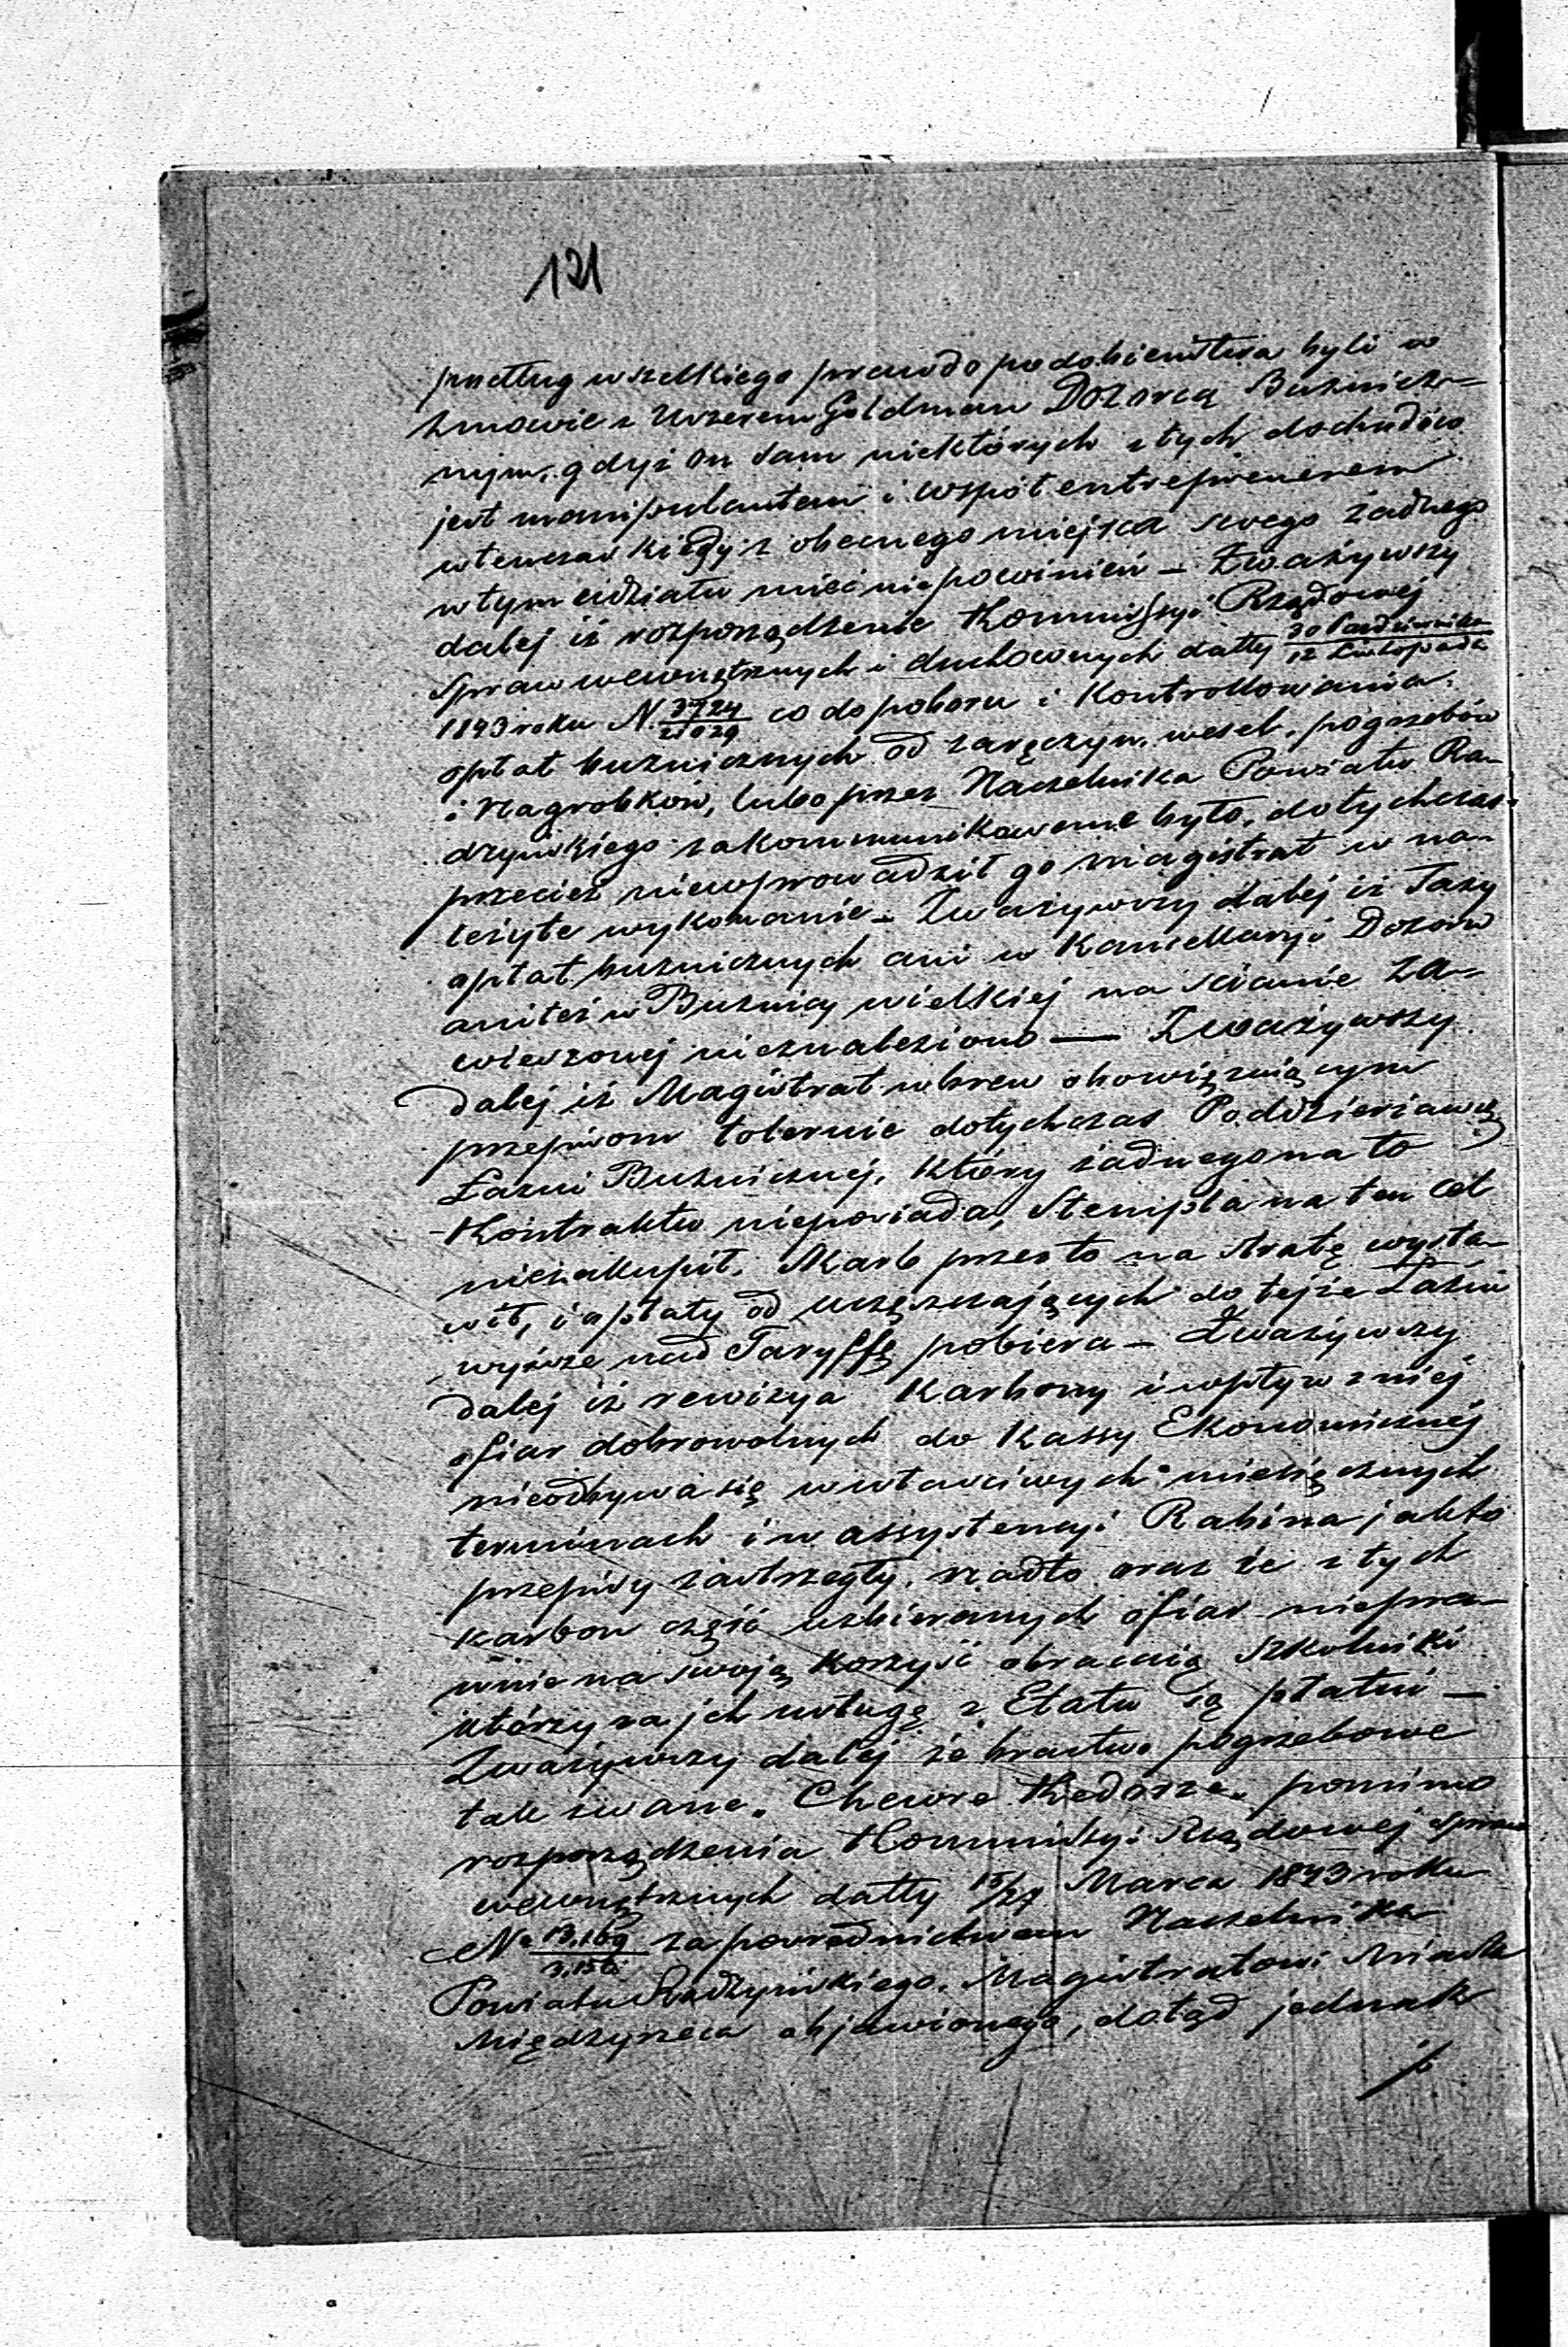 121
podług wszelkiego prawdopodobieństwa byli w
zmowie z Uszerem Goldman Dozorcą Bużnicz=
nym, gdyż on sam niektórych z tych dochodów
jest manipulantem i współ entreprenerem
wtenczas kiedy z obecnego miejsca swego żadnego
w tym udziału mieć nie powinien – Zważywszy
dalej iż rozporządzenie Kommissyi Rządowej
Spraw wewnętrznych i duchownych datty 30 Października / 12 Listopada
1843 roku N. 3724/21029 co do poboru i kontrollowania
opłat bużnicznych od zaręczyn, wesel, pogrzebów
i Nagrobków, lubo przez Naczelnika Powiatu Ra=
dzyńskiego zakommunikowane było, dotychczas
przecież niewprowadził go magistrat w na=
leżyte wykonanie – Zważywszy dalej iż Taxy
opłat bużnicznych ani w Kancellaryi Dozoru
ani też w Bużnicy wielkiej na scianie za=
wieszonej nieznaleziono — Zważywszy
dalej iż Magistrat wbrew obowiązuiącym
przepisom toleruie dotychczas Poddzierżawcę
Łazni Bużnicznéj, który żadnego na to
Kontraktu nieposiada, Stempla na ten cel
niezakupił, Skarb przez to na stratę wysta=
wił, i opłaty od uczęszczających do tejże Łazni
wyższe nad Taryffę pobiera – Zważywszy
dalej iż rewizya Karbony i wpływ z niej
ofiar dobrowolnych do Kassy Ekonomicznéj
nieodbywa się w właściwych miesięcznych
terminach i w assystencyi Rabina jak to
przepisy zastrzegły, nadto oraz że z tych
karbon część uzbieranych ofiar niepra=
wnie na swoją korzyść obracaią Szkolniki
którzy za ich usługę z Etatu są płatni —
Zważywszy dalej że bractwo pogrzebowe
tak zwane „Chewre Kedosze„ pomimo
rozporządzenia Kommissyi Rządowej spraw
wewnętrznych datty 15/27 Marca 1843 roku
No 13,169 za posrednictwem Naczelnika
Powiatu Radzyńskiego, Magistratowi Miasta
Międzyrzeca objawionego, dotąd jednak